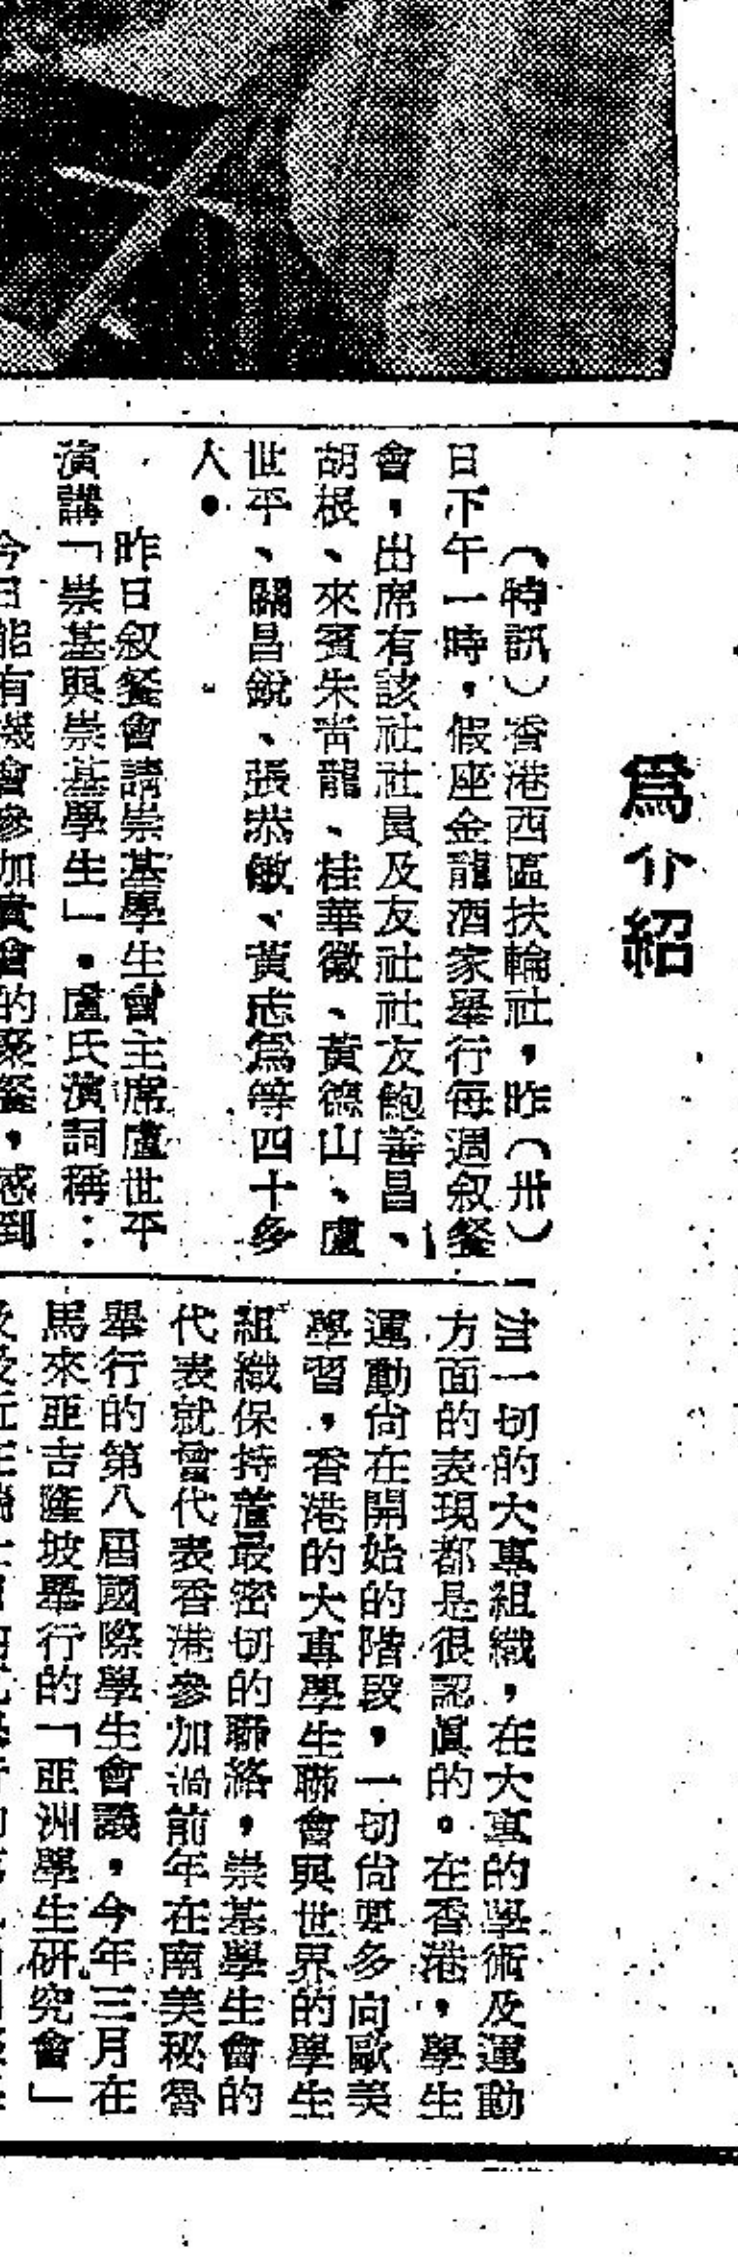 爲介紹
（特訊）香港西區扶輪社，昨（卅）
日下午一時，假座金龍酒家舉行每週叙餐
會，出席有該社社員及友社社友鮑善昌、
胡根、來賓朱靑龍、桂華徽、黃德山、盧
世平、關昌銳、張恭敏、黃志爲等四十多
人。
昨日叙餐會請崇基學生會主席盧世平
演講「崇基與崇基學生」。盧氏演詞稱：
今日能有機會參加貴會的聚餐，感到
一切的大專組織，在大專的學術及運動
方面的表現都是很認眞的。在香港，學生
運動尙在開始的階段，一切尙要多向歐美
學習，香港的大專學生聯會與世界的學生
組織保持着最密切的聯絡，崇基學生會的
代表就曾代表香港參加過前年在南美秘魯
舉行的第八屆國際學生會議，今年三月在
馬來亞吉隆坡舉行的「亞洲學生硏究會」